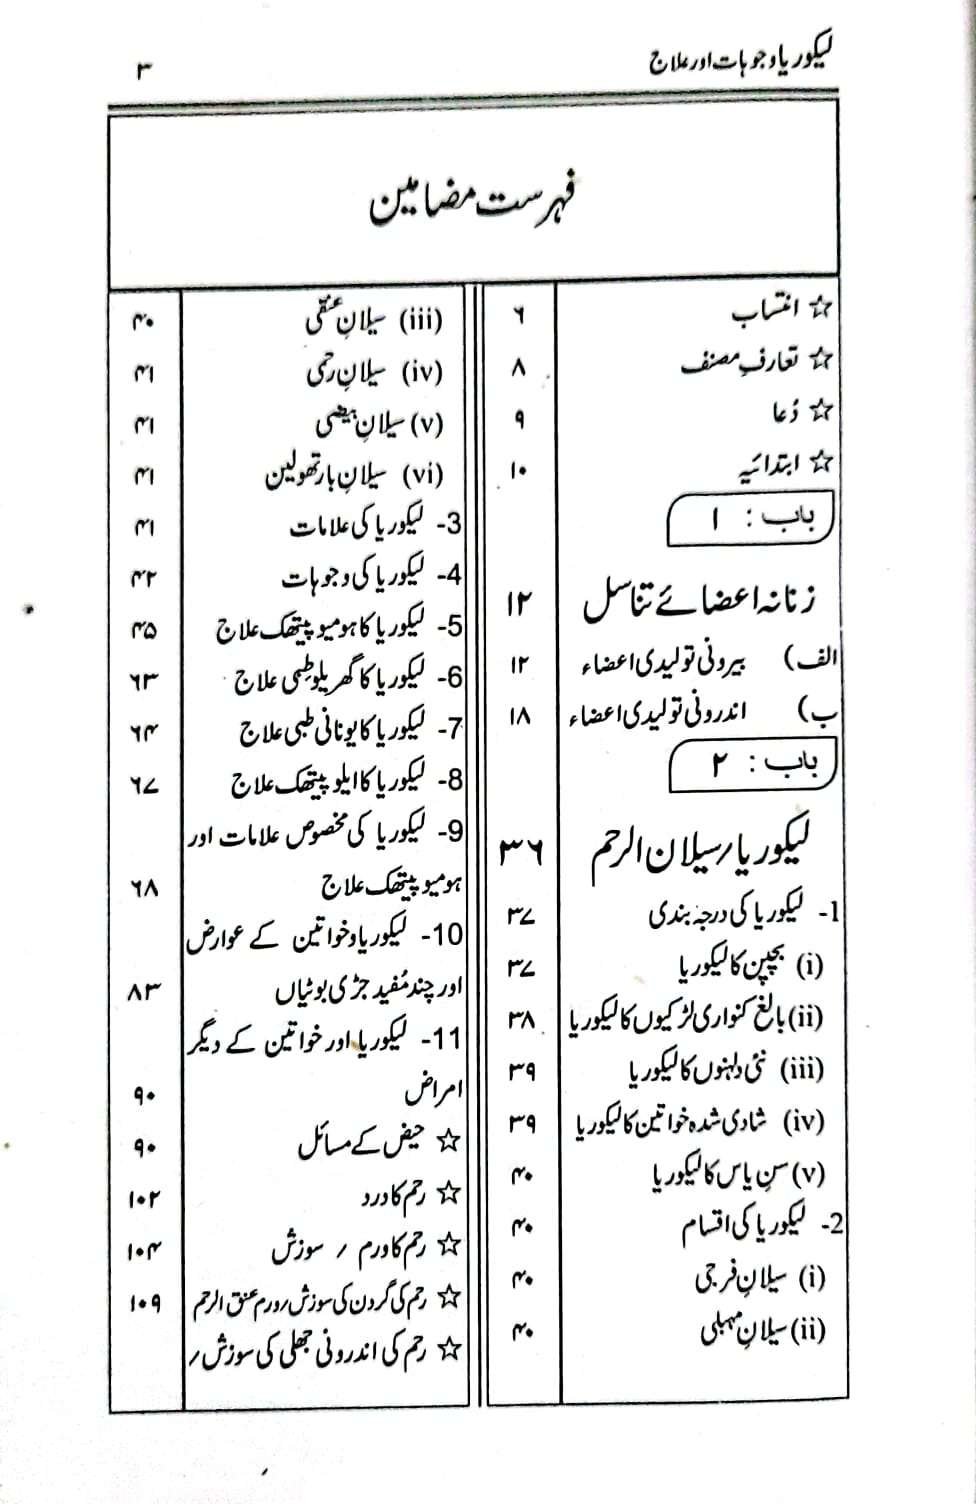 لیکوریا وجوہات اور علاج
۳
فہرست مضامین
☆ انتساب ۶
☆ تعارفِ مصنف ۸
☆ دُعا ۹
☆ ابتدائیہ ۱۰
باب : ۱
زنانہ اعضائے تناسل ۱۲
الف) بیرونی تولیدی اعضاء ۱۲
ب) اندرونی تولیدی اعضاء ۱۸
باب : ۲
لیکوریا/سیلان الرحم ۳۶
1- لیکوریا کی درجہ بندی ۳۷
(i) بچپن کا لیکوریا ۳۷
(ii) بالغ کنواری لڑکیوں کا لیکوریا ۳۸
(iii) نئی دلہنوں کا لیکوریا ۳۹
(iv) شادی شدہ خواتین کا لیکوریا ۳۹
(v) سنِ یاس کا لیکوریا ۴۰
2- لیکوریا کی اقسام ۴۰
(i) سیلانِ فرجی ۴۰
(ii) سیلانِ مہبلی ۴۰
(iii) سیلانِ عنقی ۴۰
(iv) سیلانِ رحمی ۴۱
(v) سیلانِ بیضی ۴۱
(vi) سیلانِ بارتھولین ۴۱
3- لیکوریا کی علامات ۴۱
4- لیکوریا کی وجوہات ۴۲
5- لیکوریا کا ہومیوپیتھک علاج ۴۵
6- لیکوریا کا گھریلو طبی علاج ۶۳
7- لیکوریا کا یونانی طبی علاج ۶۴
8- لیکوریا کا ایلوپیتھک علاج ۶۷
9- لیکوریا کی مخصوص علامات اور
ہومیوپیتھک علاج ۶۸
10- لیکوریا و خواتین کے عوارض
اور چند مُفید جڑی بوٹیاں ۸۳
11- لیکوریا اور خواتین کے دیگر
امراض ۹۰
☆ حیض کے مسائل ۹۰
☆ رحم کا درد ۱۰۲
☆ رحم کا ورم / سوزش ۱۰۴
☆ رحم کی گردن کی سوزش/ورم عنق الرحم ۱۰۹
☆ رحم کی اندرونی جھلی کی سوزش/